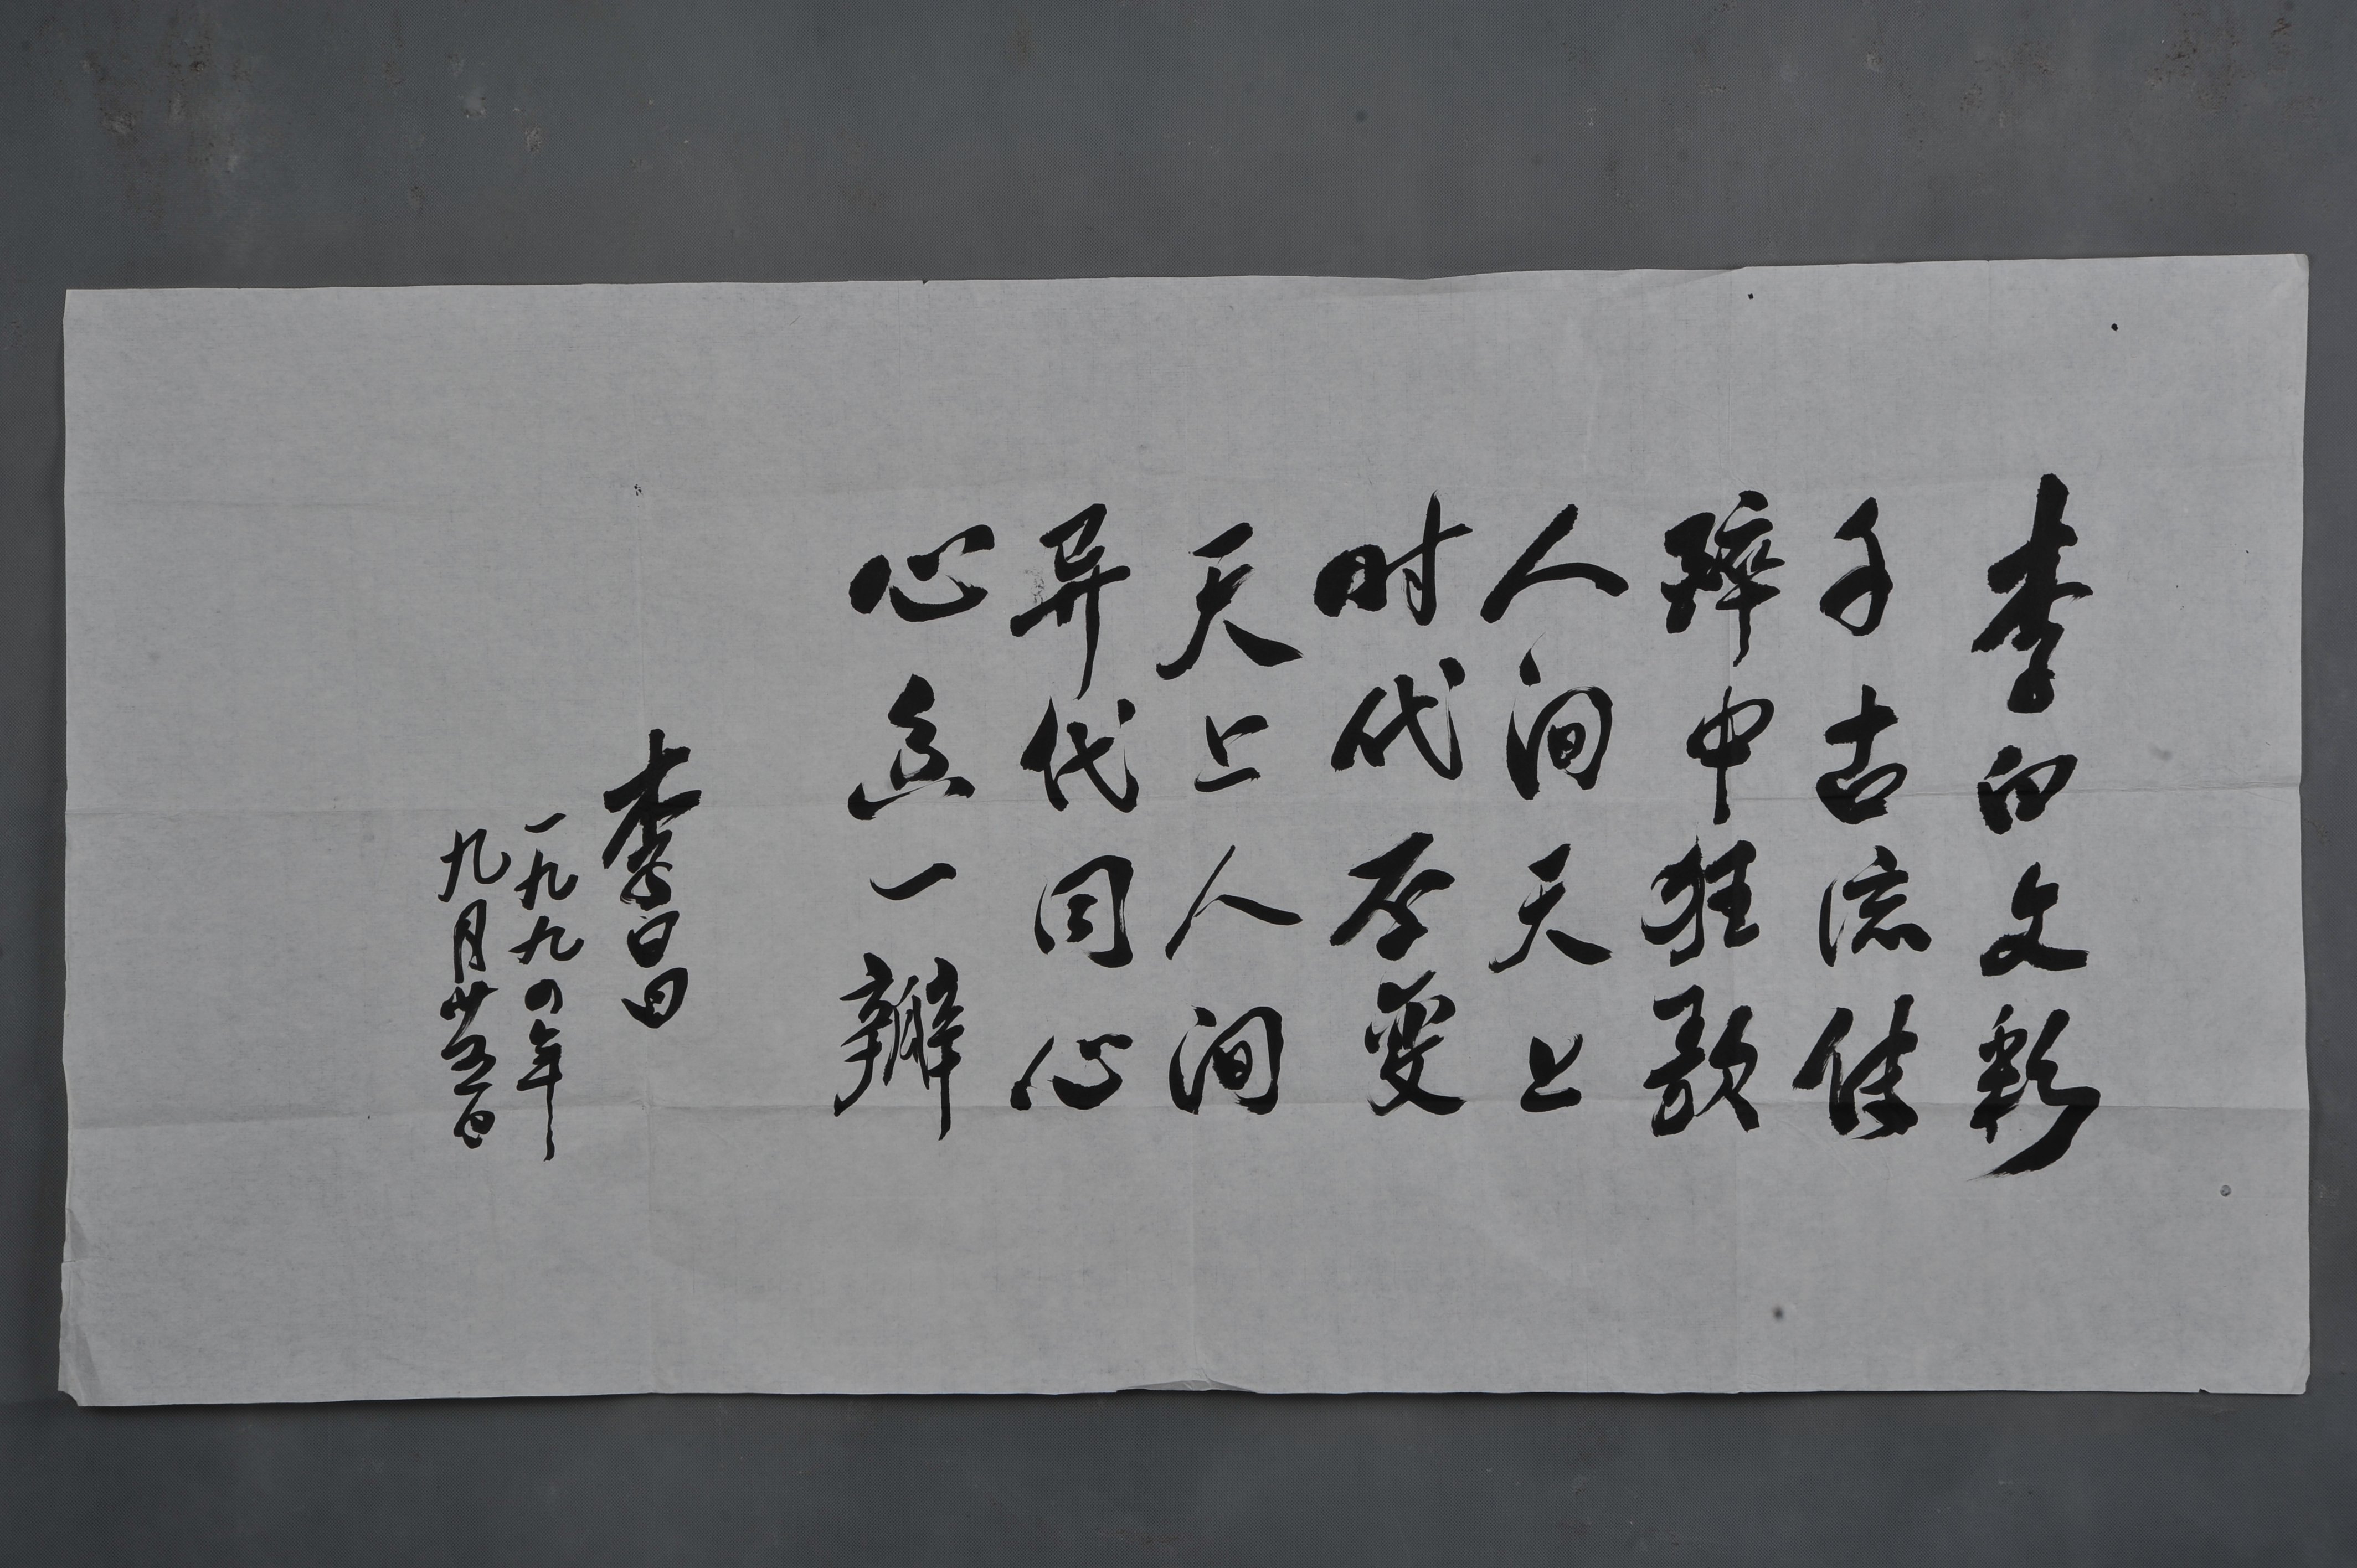 李白文彩
千古流传
醉中狂歌
人间天上
时代变
天上人间
异代同心
心一瓣
李昌
一九九四年
九月廿五日